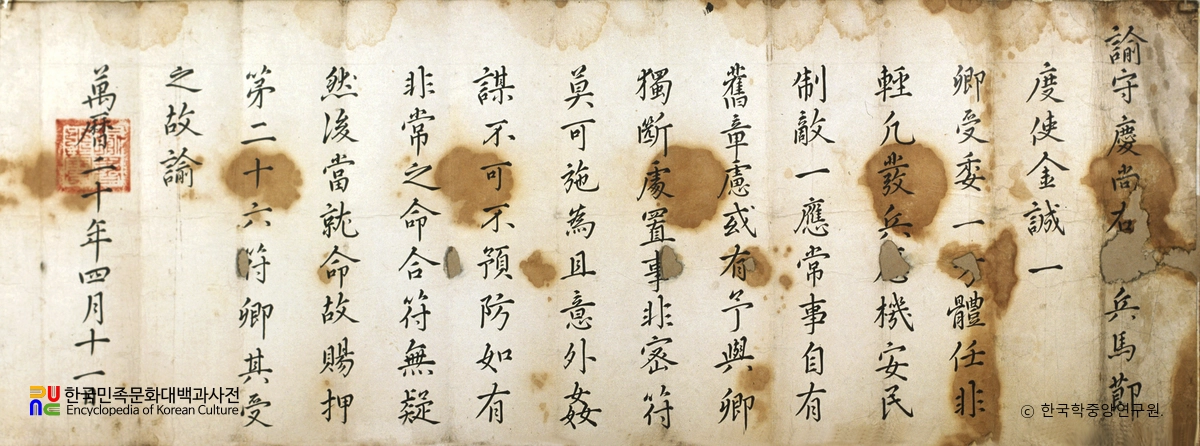 諭守慶尚右 兵馬節
度使金誠一
卿受委一方體任非
輕凡發兵應機安民
制敵一應常事自有
舊章慮或有予與卿
獨斷處置事非密符
莫可施為且意外姦
謀不可不預防如有
非常之命合符無疑
然後當就命故賜押
第二十六符卿其受
之故諭
萬曆二十年四月十一日
한국민족문화대백과사전
Encyclopedia of Korean Culture
© 한국학중앙연구원